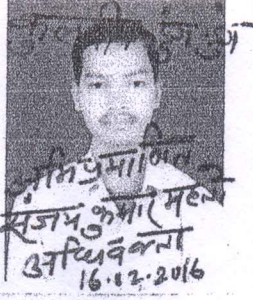 अभिप्रमाणित
संजय कुमार महतो
अधिवक्ता
16.02.2016